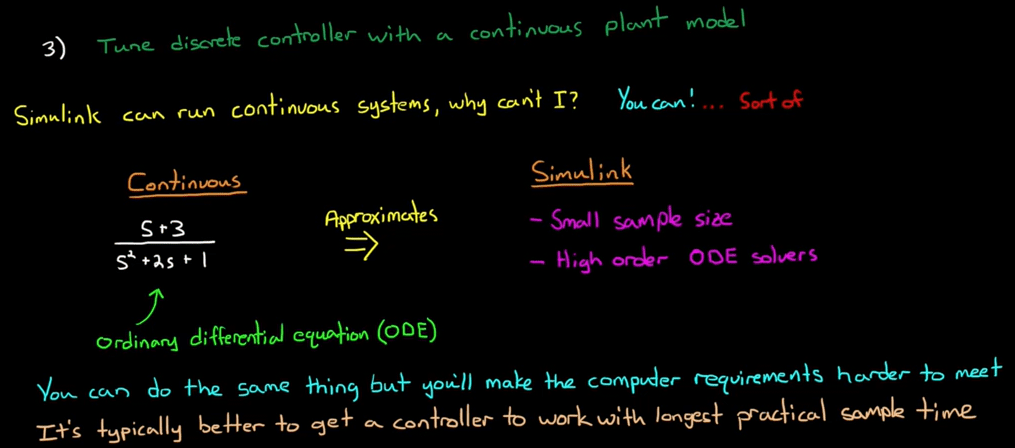 3) Tune discrete controller with a continuous plant model
Simulink can run continuous systems, why can't I? You can! ... Sort of
Continuous
S+3
S² +2s + 1
Approximates
⇒
Simulink
- Small sample size
- High order ODE solvers
Ordinary differential equation (ODE)
You can do the same thing but you'll make the computer requirements harder to meet
It's typically better to get a controller to work with longest practical sample time